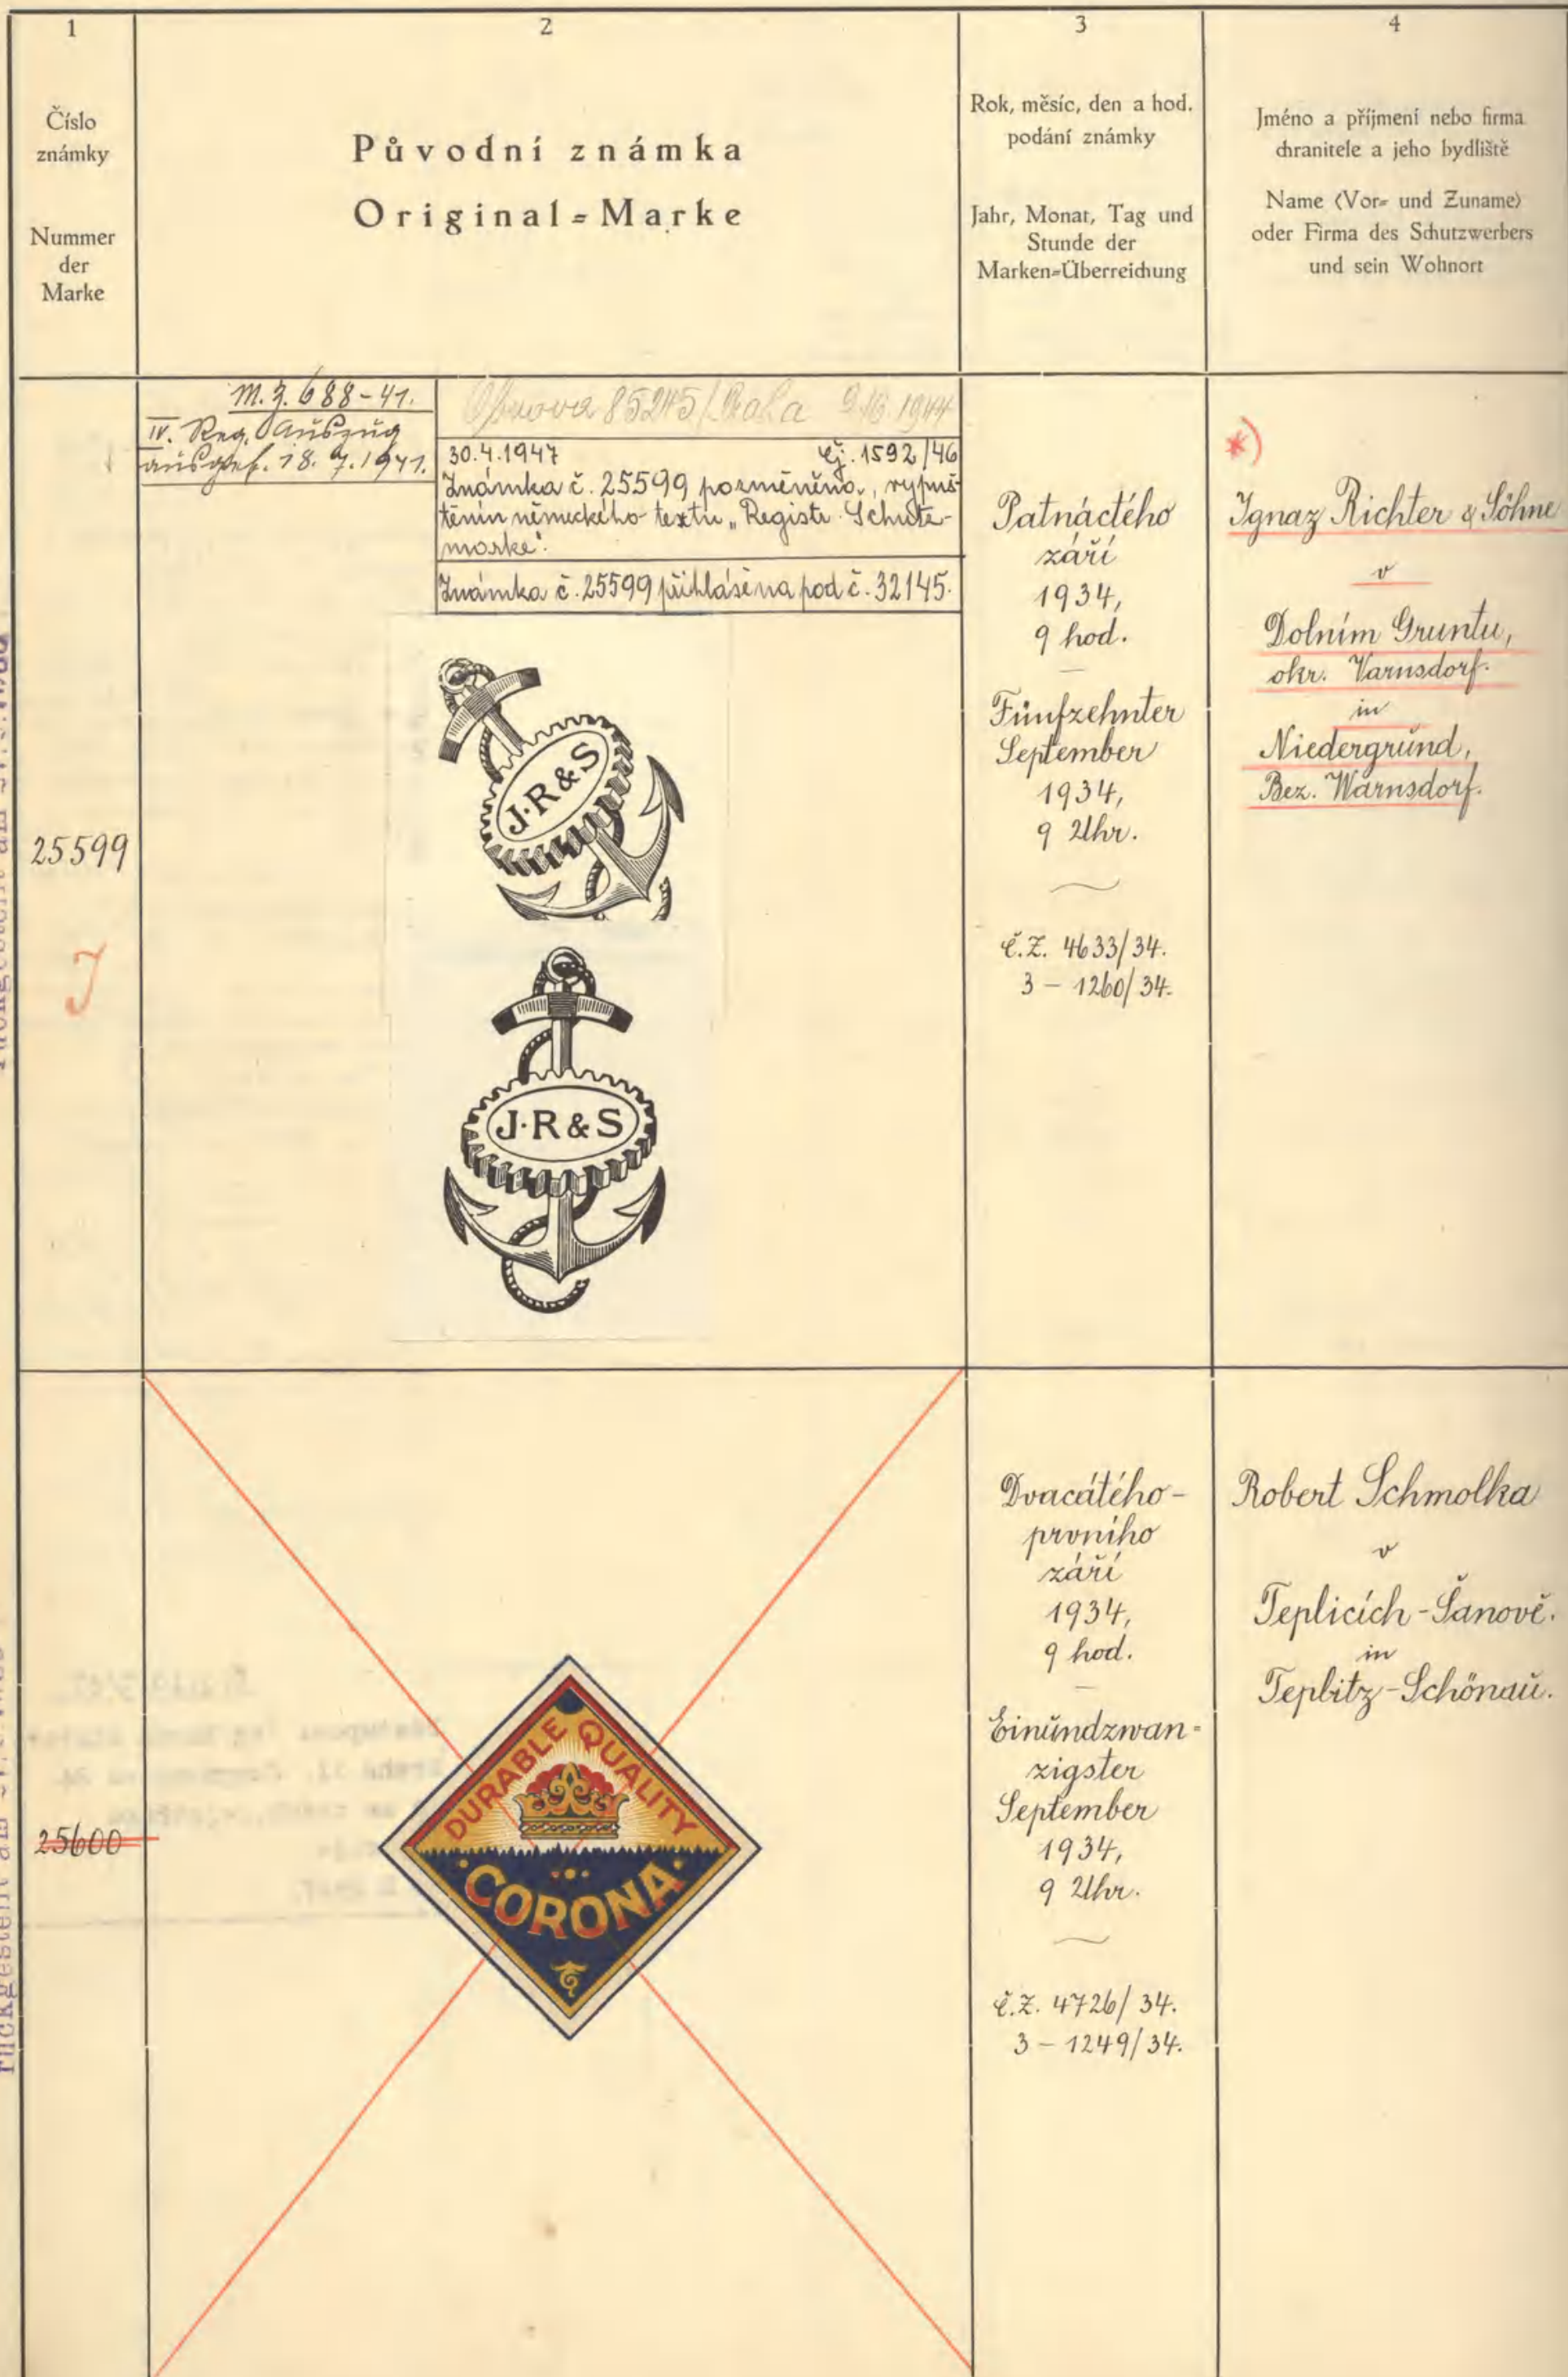 1
2
3
4
Číslo
známky
Nummer
der
Marke
Původní známka
Original=Marke
Rok, měsíc, den a hod.
podání známky
Jahr, Monat, Tag und
Stunde der
Marken=Überreichung
Jméno a příjmení nebo firma
chranitele a jeho bydliště
Name (Vor= und Zuname)
oder Firma des Schutzwerbers
und sein Wohnort
M.Z. 688-41.
IV. Reg. Auszug
ausgef. 18.7.1941.
Obnova 85245/Praha 1944
30.4.1947 čj. 1592/46
Známka č. 25599 pozměněna, vypuš-
těním německého textu „Registr. Schutz-
marke".
Známka č. 25599 přihlášena pod č. 32145.
25599
J
J·R&S
J·R&S
Patnáctého
září
1934,
9 hod.
Fünfzehnter
September
1934,
9 Uhr.
Č.Z. 4633/34.
3 – 1260/34.
*)
Ignaz Richter & Söhne
v
Dolním Gruntu,
okr. Varnsdorf.
in
Niedergrund,
Bez. Warnsdorf.
25600
DURABLE QUALITY
·CORONA·
Dvacátého-
prvního
září
1934,
9 hod.
Einundzwan=
zigster
September
1934,
9 Uhr.
Č.Z. 4726/34.
3 – 1249/34.
Robert Schmolka
v
Teplicích-Šanově.
in
Teplitz-Schönau.